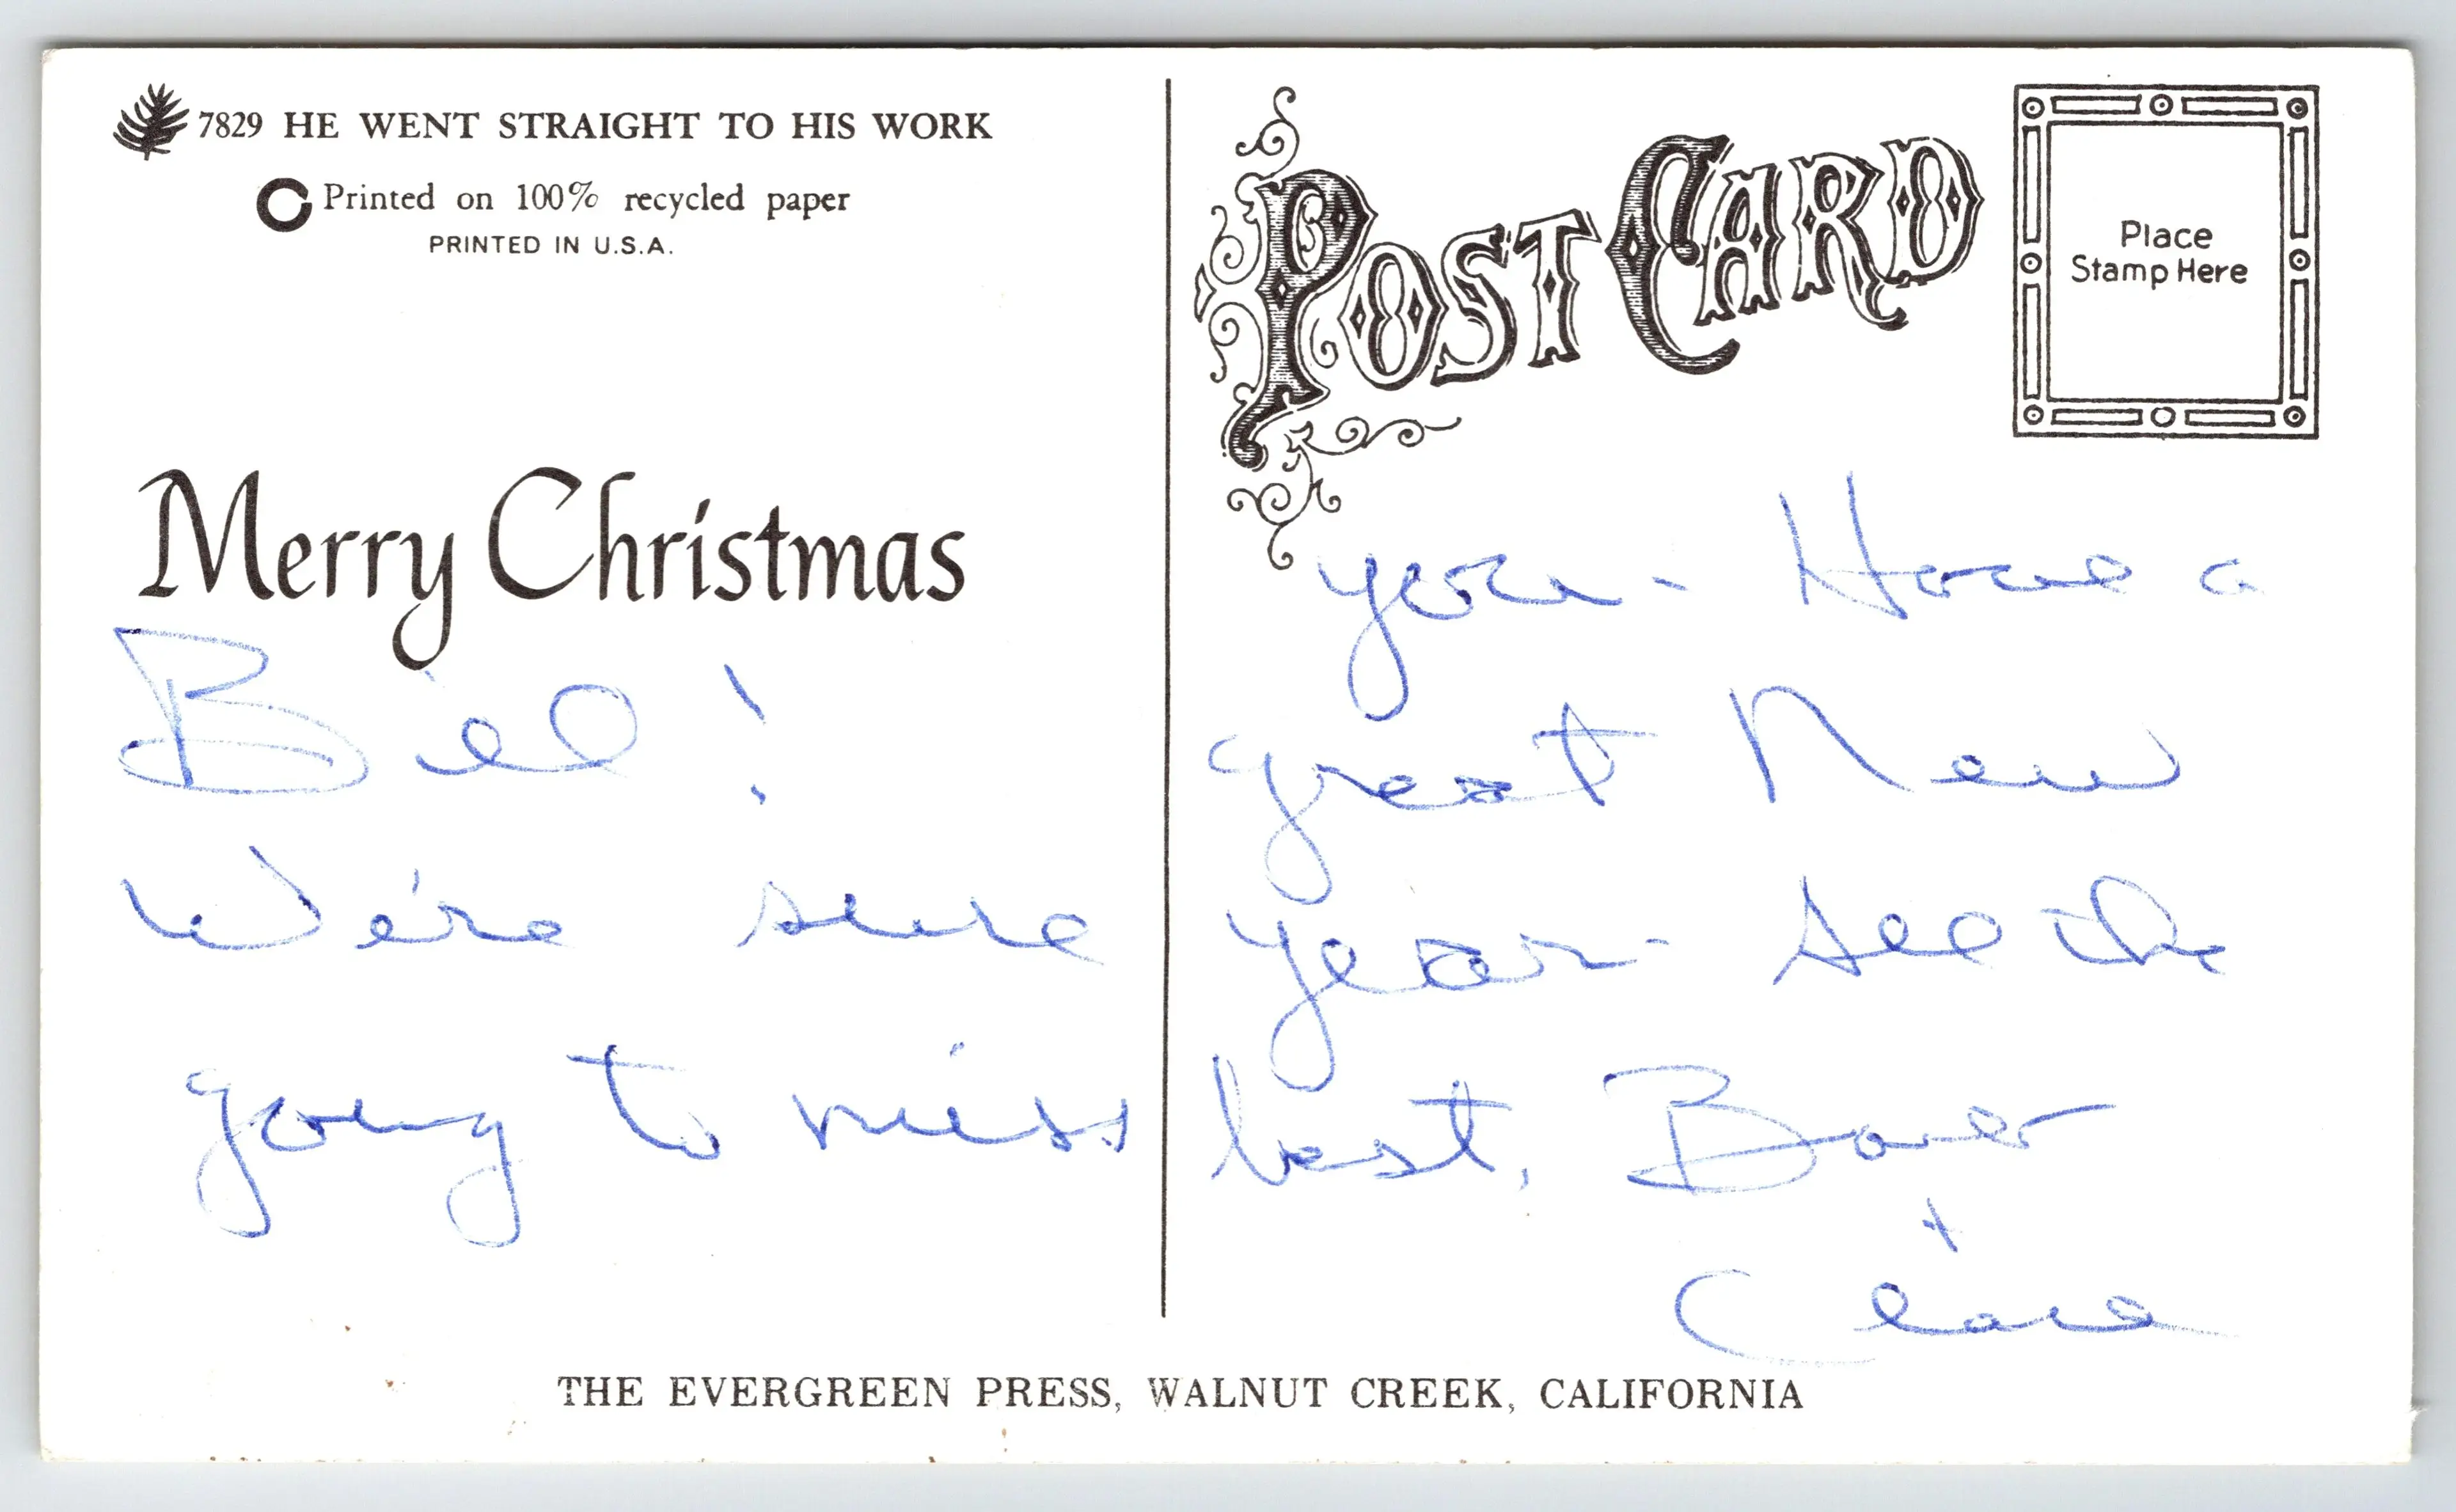 7829 HE WENT STRAIGHT TO HIS WORK
Printed on 100% recycled paper
PRINTED IN U.S.A.
Merry Christmas
Bill!
We're sure
going to miss
POST CARD
Place
Stamp Here
you - Have a
great New
year - See the
best,
+
THE EVERGREEN PRESS, WALNUT CREEK, CALIFORNIA